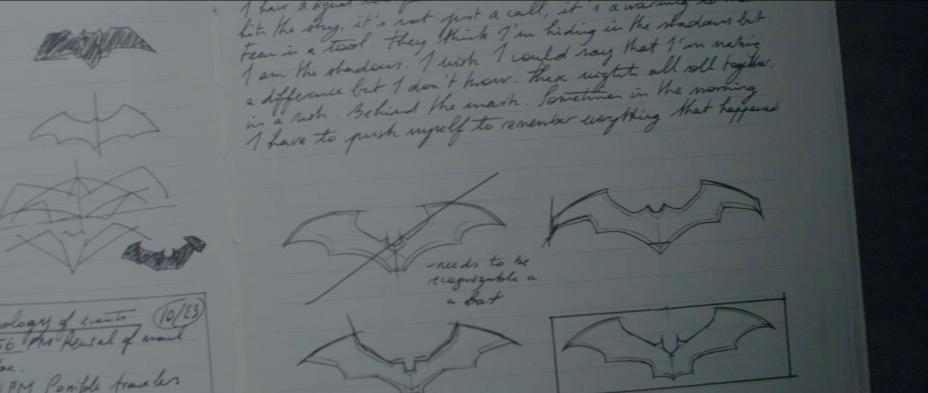 I have a
hits the sky, it's not just a call, it's a warning to
Fear is a tool. They think I'm hiding in the shadows but
I am the shadows. I wish I could say that I'm making
a difference but I don't know. These nights all roll together
in a rush. Behind the mask. Sometimes in the morning
I have to push myself to remember everything that happened
-needs to be
recognizable a
a bat
ology of events 10/23
PM Rental of
PM Possible travelers